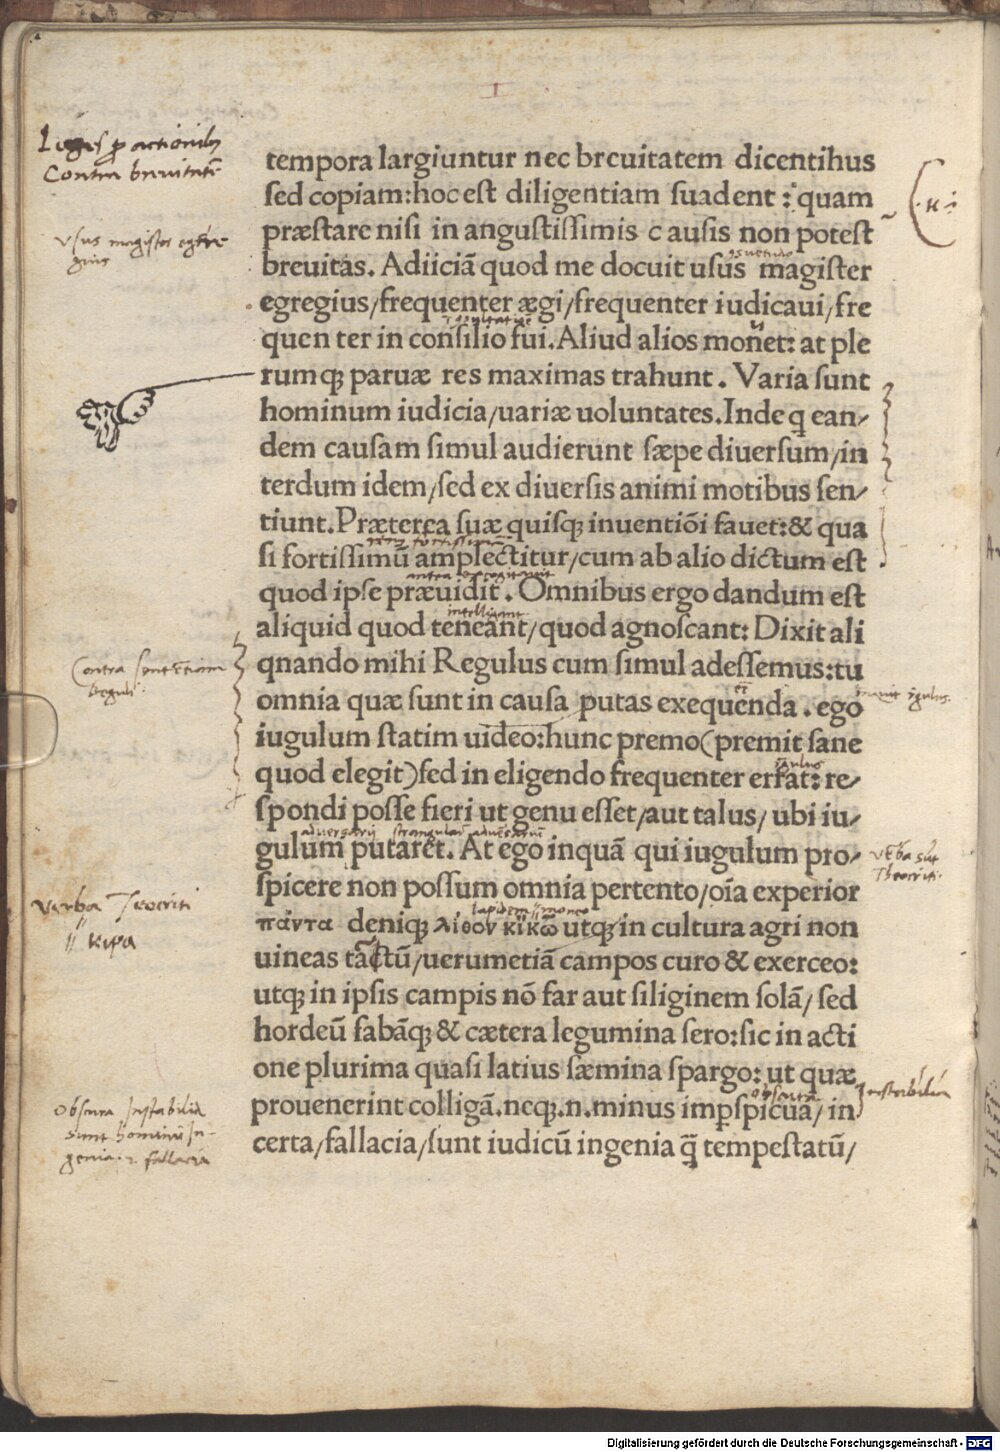 I
tempora largiuntur nec breuitatem dicentihus
sed copiam:hoc est diligentiam suadent : quam
præstare nisi in angustissimis c ausis non potest
breuitas. Adiiciā quod me docuit usus magister
egregius/frequenter ægi/frequenter iudicaui/fre
quen ter in consilio fui. Aliud alios monet: at ple
rumqꝫ paruæ res maximas trahunt. Varia sunt
hominum iudicia/uariæ uoluntates. Inde q̨ ean/
dem causam simul audierunt sæpe diuersum/in
terdum idem/sed ex diuersis animi motibus sen/
tiunt. Præterea suæ quisqꝫ inuentiōi fauet:& qua
si fortissimū amplectitur/cum ab alio dictum est
quod ipse præuidit. Omnibus ergo dandum est
aliquid quod teneant/quod agnoscant: Dixit ali
qnando mihi Regulus cum simul adessemus:tu
omnia quæ sunt in causa putas exequenda. ego
iugulum statim uideo:hunc premo(premit sane
quod elegit)sed in eligendo frequenter errat: re/
spondi posse fieri ut genu esset/aut talus/ ubi iu/
gulum putaret. At ego inquā qui iugulum pro/
spicere non possum omnia pertento/oīa experior
πάντα deniqꝫ λίθον κικῶ utqꝫ in cultura agri non
uineas tātū/uerumetiā campos curo & exerceo:
utqꝫ in ipsis campis nō far aut siliginem solā/ sed
hordeū fabāqꝫ & cætera legumina sero:sic in acti
one plurima quasi latius sæmina spargo: ut quæ
prouenerint colligā. neqꝫ.n.minus imꝑspicua/ in
certa/fallacia/sunt iudicū ingenia q̄ȝ tempestatū/
Leges ꝓ actionibꝫ
Contra breuitatē
Vsus magister egre
gius
Contra sententiam
Reguli
Verba Teocriti
κιρα
Obscura Instabilia
sunt hominū In-
genia et fallacia
Verba sūt
Theocriti
instabilia
Digitalisierung gefördert durch die Deutsche Forschungsgemeinschaft - DFG